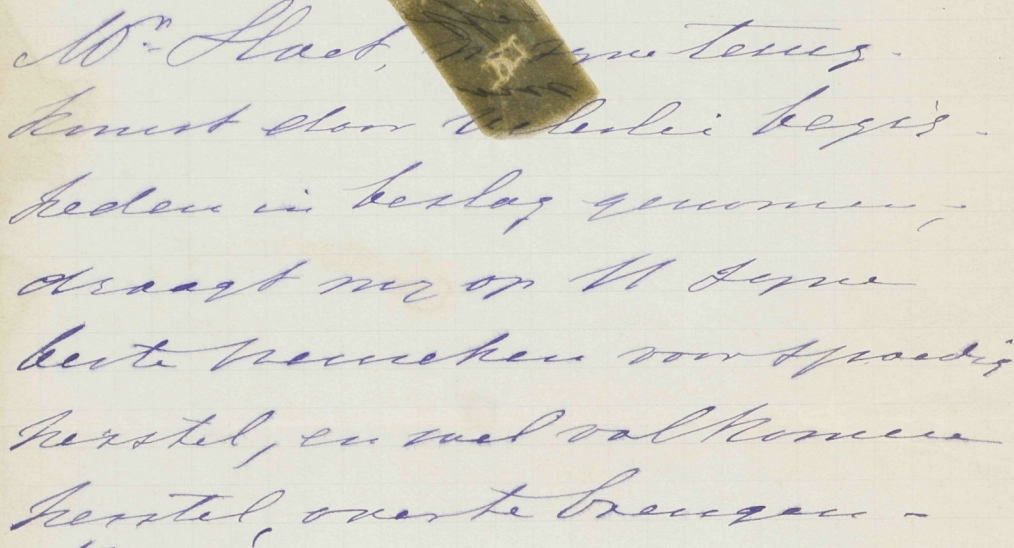 Mr. Sloet, na zyne terug-
komst door velerlei bezig-
heden in beslag genomen,
draagt my op U zyne
beste wenschen voor spoedig
herstel, en wel volkomen
herstel, over te brengen -